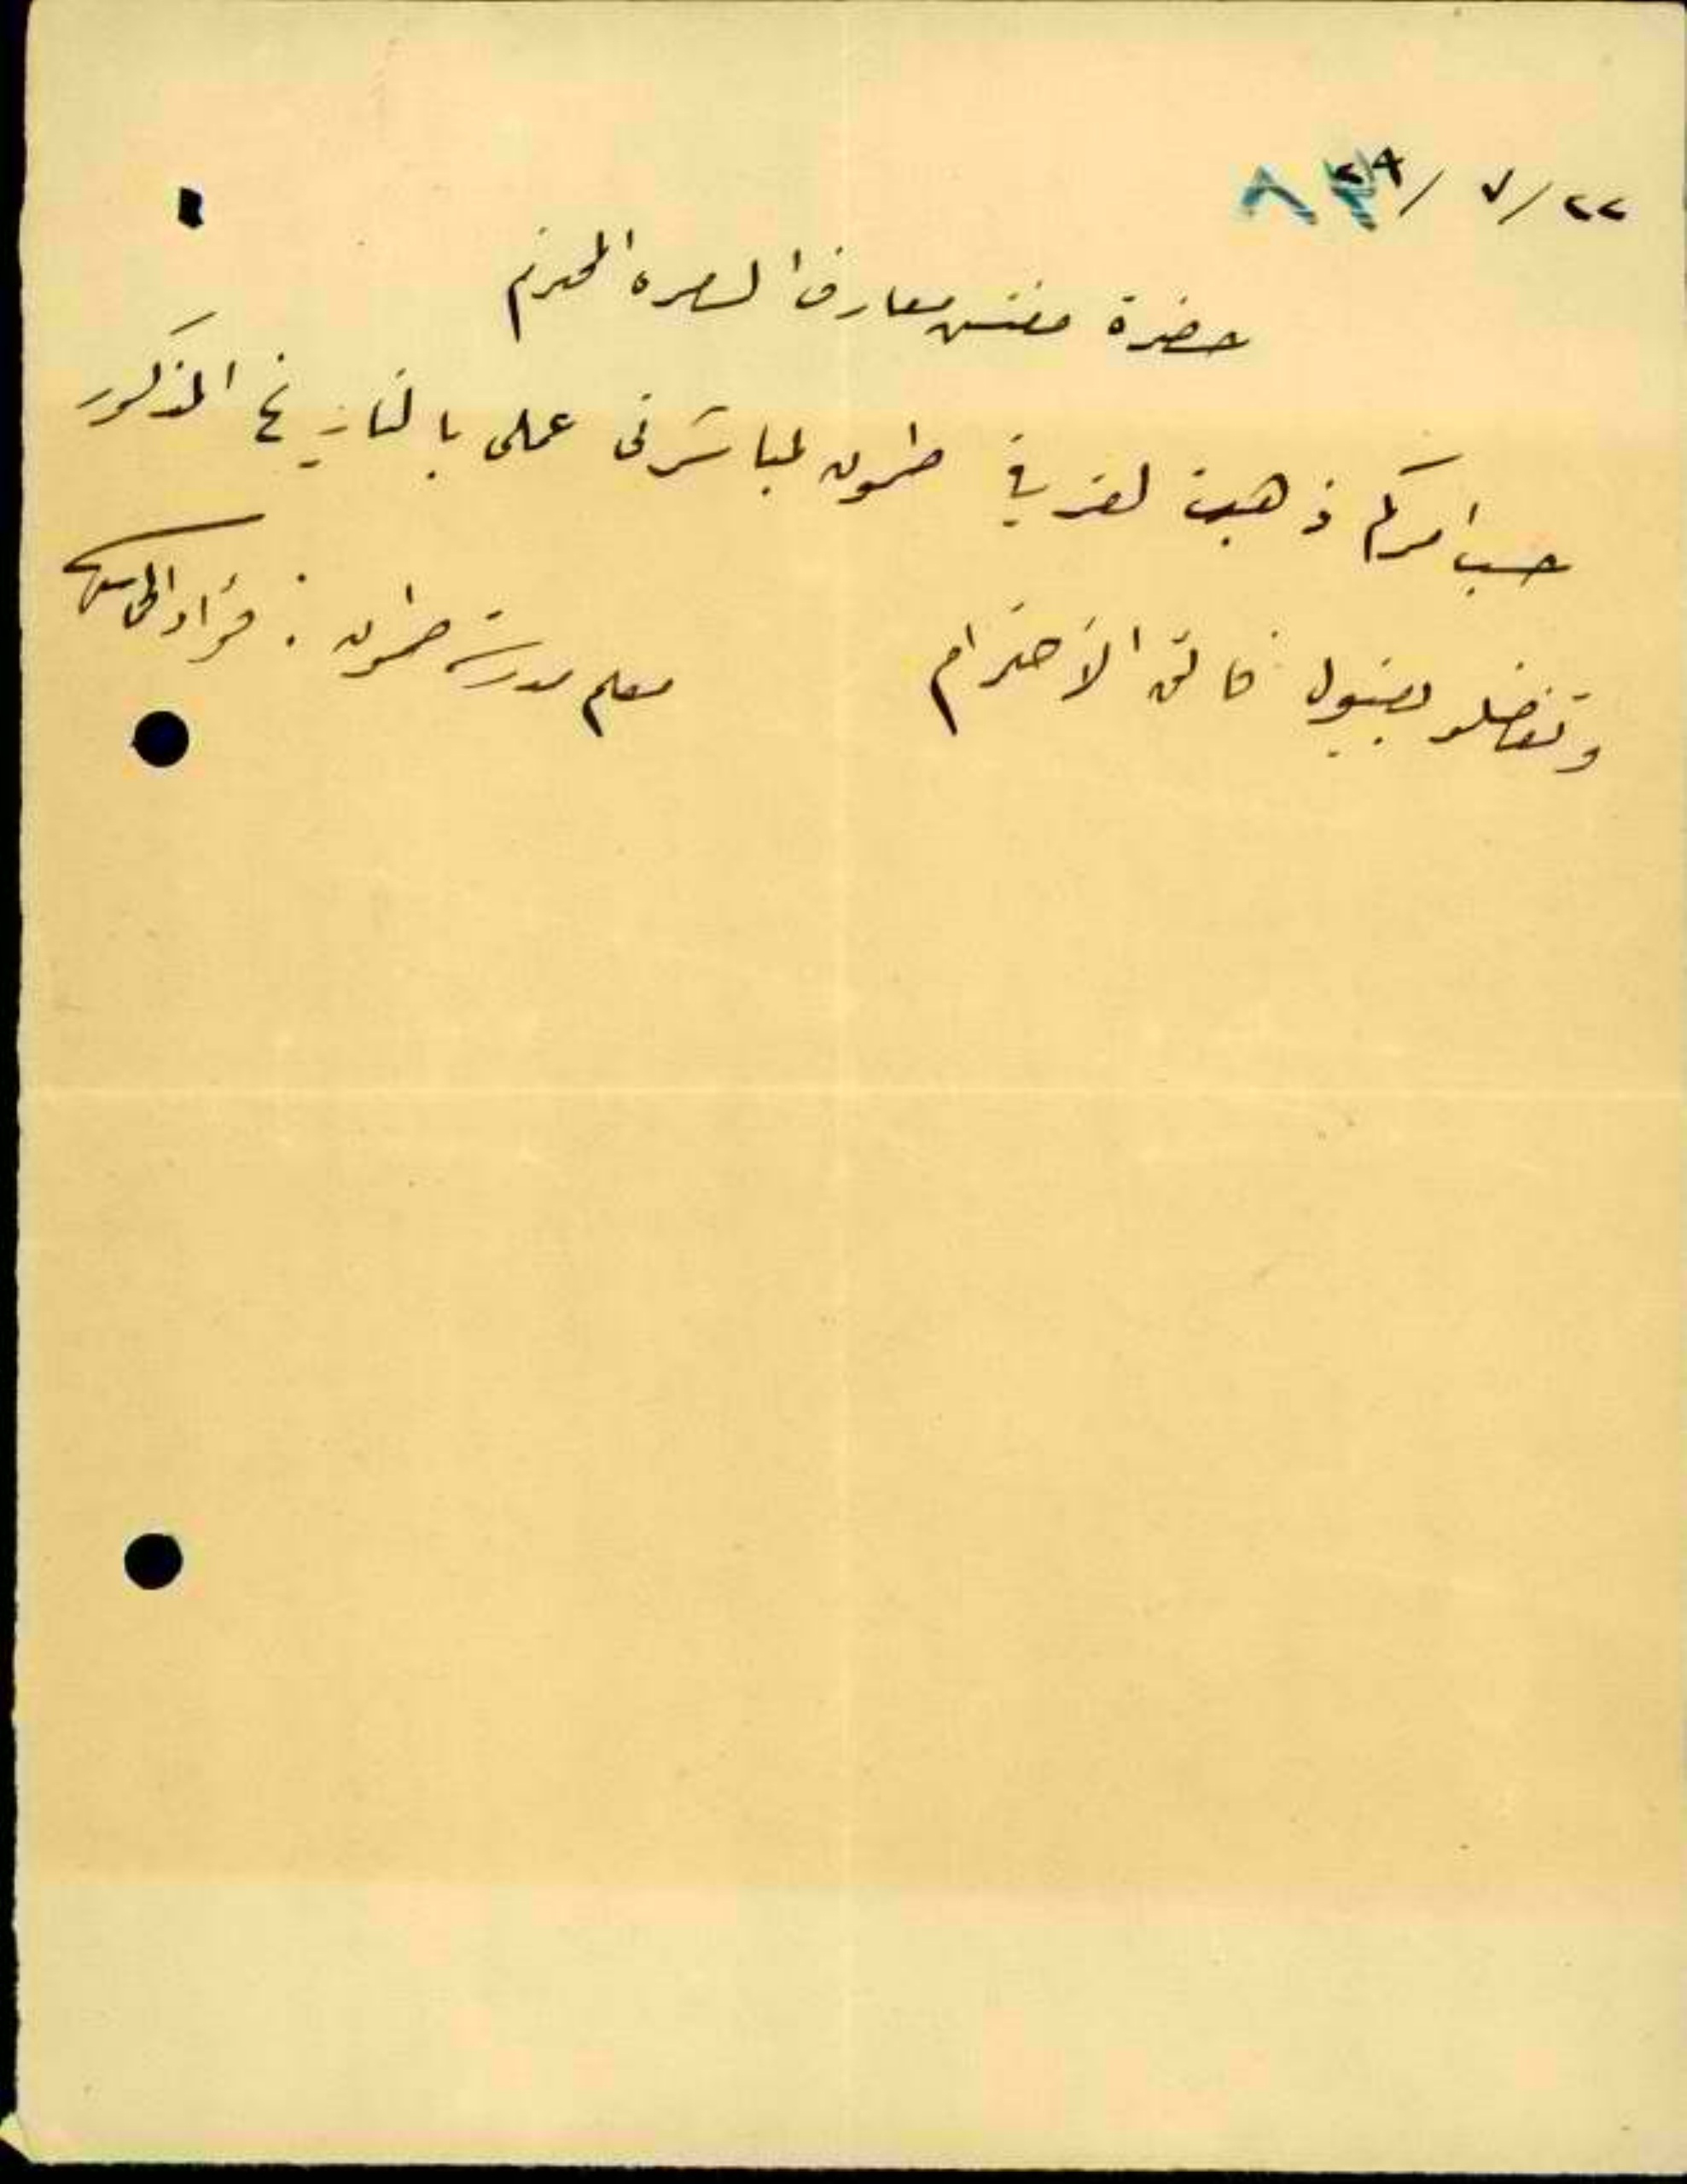 ٢٢/ ٧/ ٢٨
حضرة مفتش معارف الناصره المحترم
حسب امركم ذهبت لقرية طمون لمباشرتي عملي بالتاريخ المذكور
وتفضلو بقبول فائق الاحترام
معلم مدرسة طمون : فؤاد